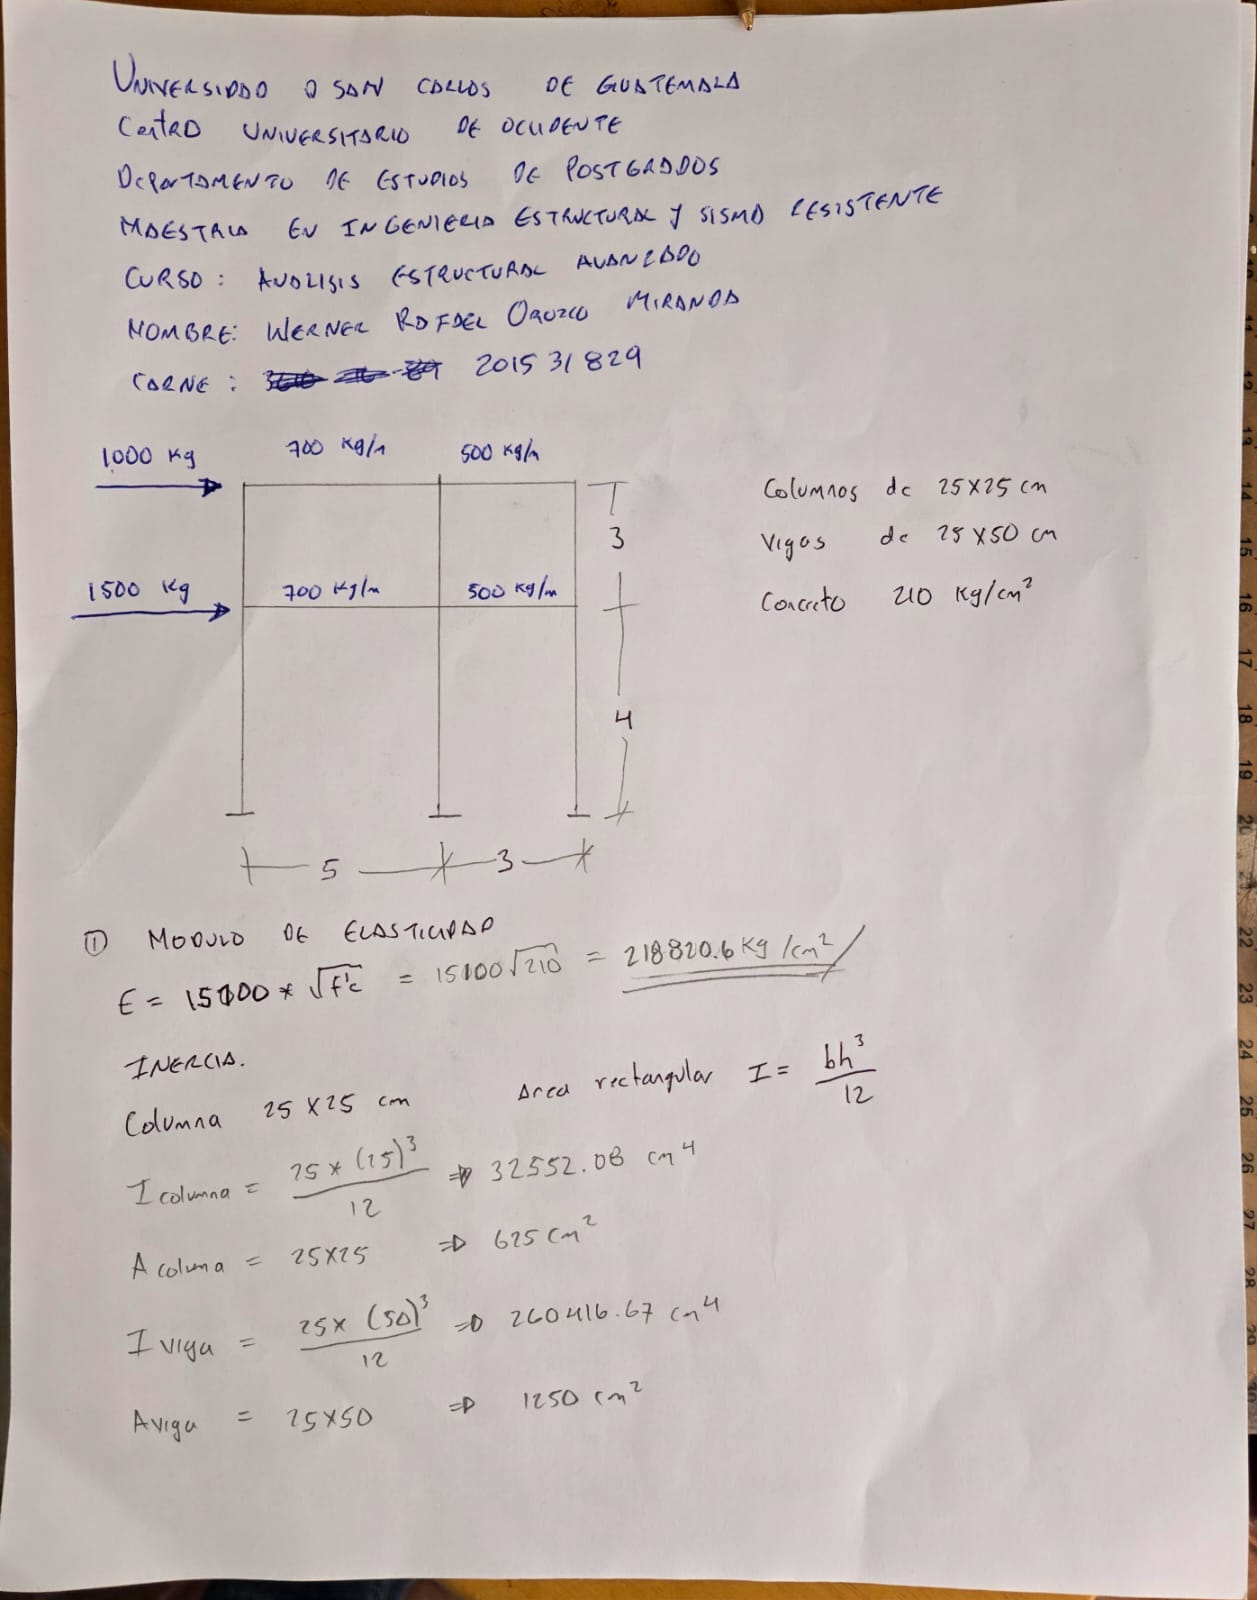 UNIVERSIDAD D SAN CARLOS DE GUATEMALA
CENTRO UNIVERSITARIO DE OCCIDENTE
DEPARTAMENTO DE ESTUDIOS DE POSTGRADOS
MAESTRIA EN INGENIERIA ESTRUCTURAL Y SISMO RESISTENTE
CURSO: ANALISIS ESTRUCTURAL AVANZADO
NOMBRE: WERNER RAFAEL OROZCO MIRANDA
CARNE: 201531829
1000 Kg 700 Kg/m 500 Kg/m
Columnas de 25X25 cm
3
Vigas de 25X50 cm
1500 Kg 700 Kg/m 500 Kg/m
Concreto 210 Kg/cm²
4
5 3
① MODULO DE ELASTICIDAD
E = 15100 * √f'c = 15100√210 = 218820.6 Kg/cm²
INERCIA.
Columna 25X25 cm Area rectangular I = bh³/12
I columna = 25*(25)³/12 ⇒ 32552.08 cm⁴
A coluna = 25X25 ⇒ 625 cm²
I viga = 25x(50)³/12 ⇒ 260416.67 cm⁴
A viga = 25X50 ⇒ 1250 cm²
22
23
24
25
26
27
28
14
15
16
17
18
19
20